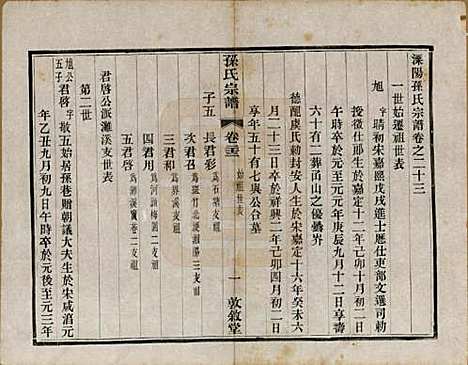 溧陽孫氏宗譜卷之二十三
一世始遷祖世表
旭 字晴初宋嘉熙戊戌進士歷仕吏部文選司勅
授徵仕郎生於嘉定十二年己卯十月初一日
午時卒於元庚辰九月十二日享壽
六十有二葬甬山之優曇岕
德配虞氏勅封安人生於宋嘉定十六年癸未六
月二十三日卒於祥興二年己卯四月初二日
享年五十有七與公合墓
子五 長君彩 為石塘支祖
次君 為班竹北渡湘陽三支祖
三君和 為昇溪支祖
四君用 為河頭梅園二支祖
五君啓 為灘溪竇巷二支祖
孫氏宗譜
卷二十三
始祖世表
一
敦敘堂
君啓公派灘溪支世表
第二世
旭公五子 君啓 字敬五始居孫巷贈朝議大夫生於宋咸淳元
年乙丑九月初九日午時卒於元後至元三年